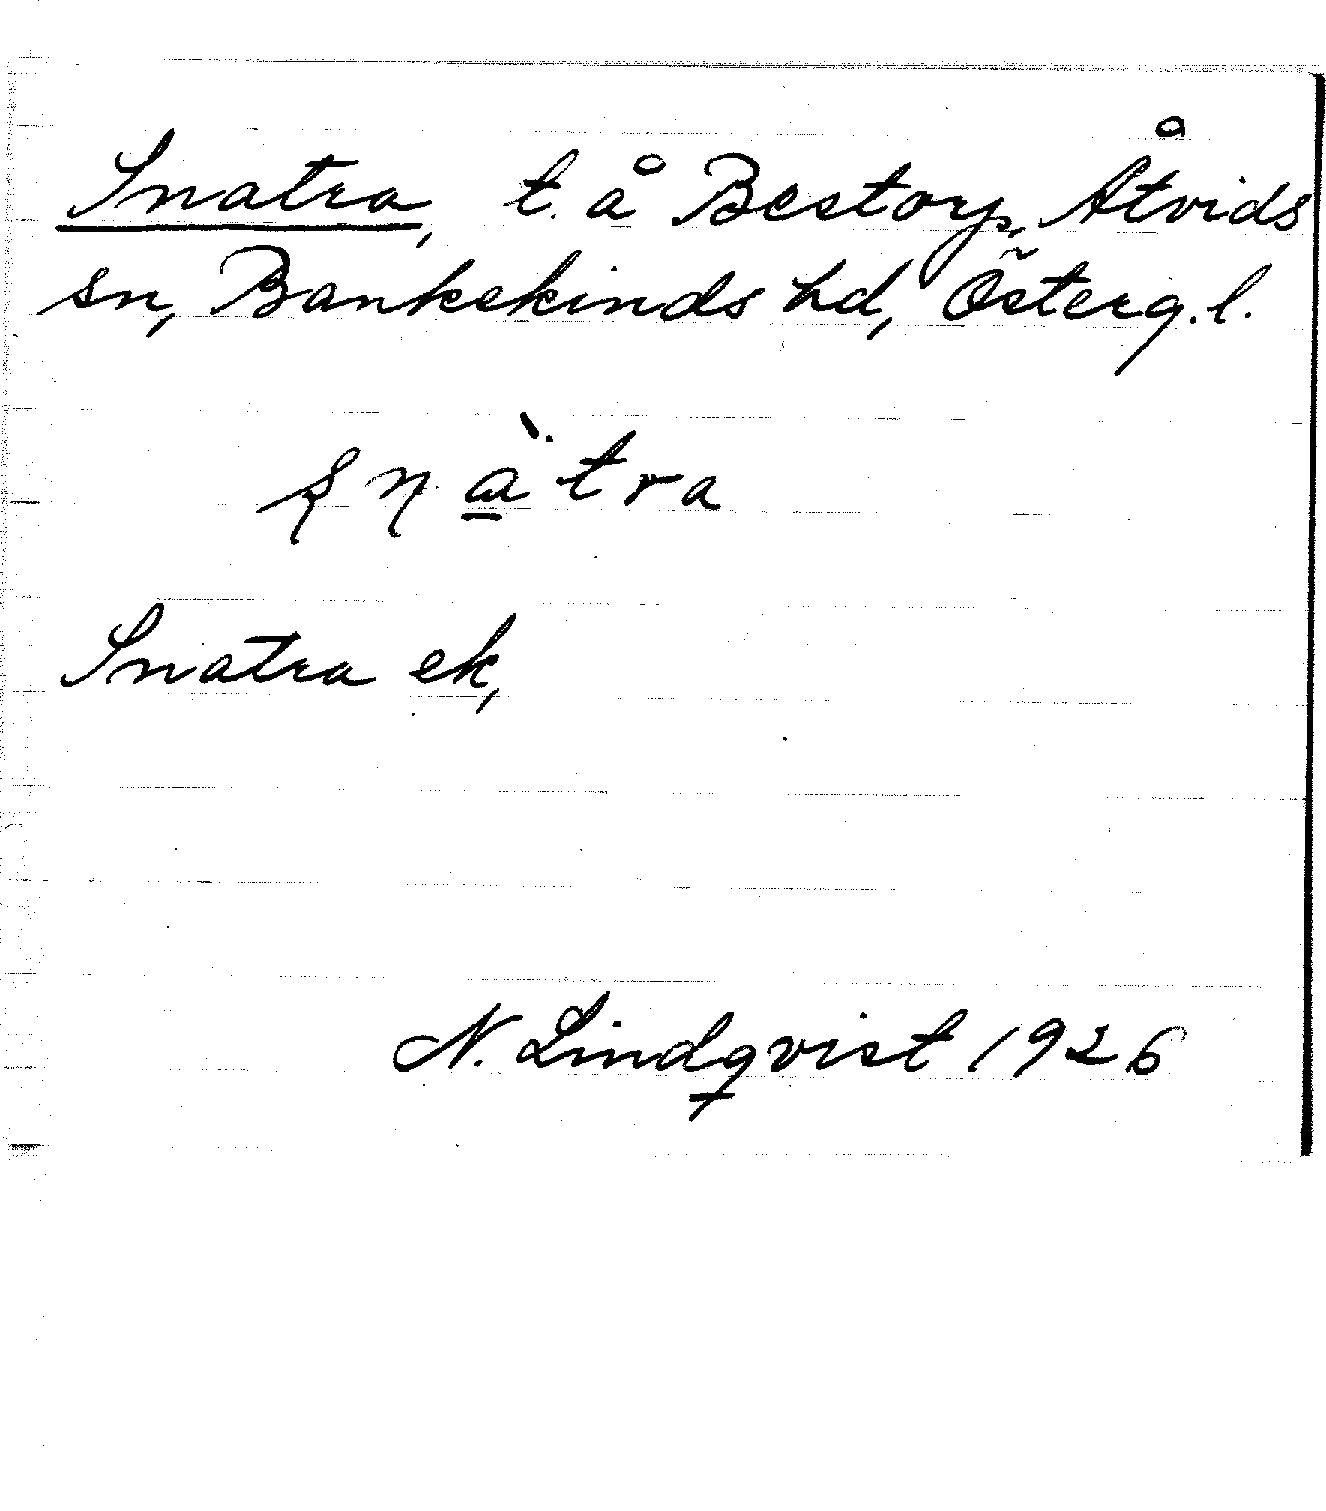 Snatra, t. å Bestorp, Åtvids
sn, Bankekinds hd, Österg.l.
snàtra
Snatra ek,
N. Lindqvist 1926